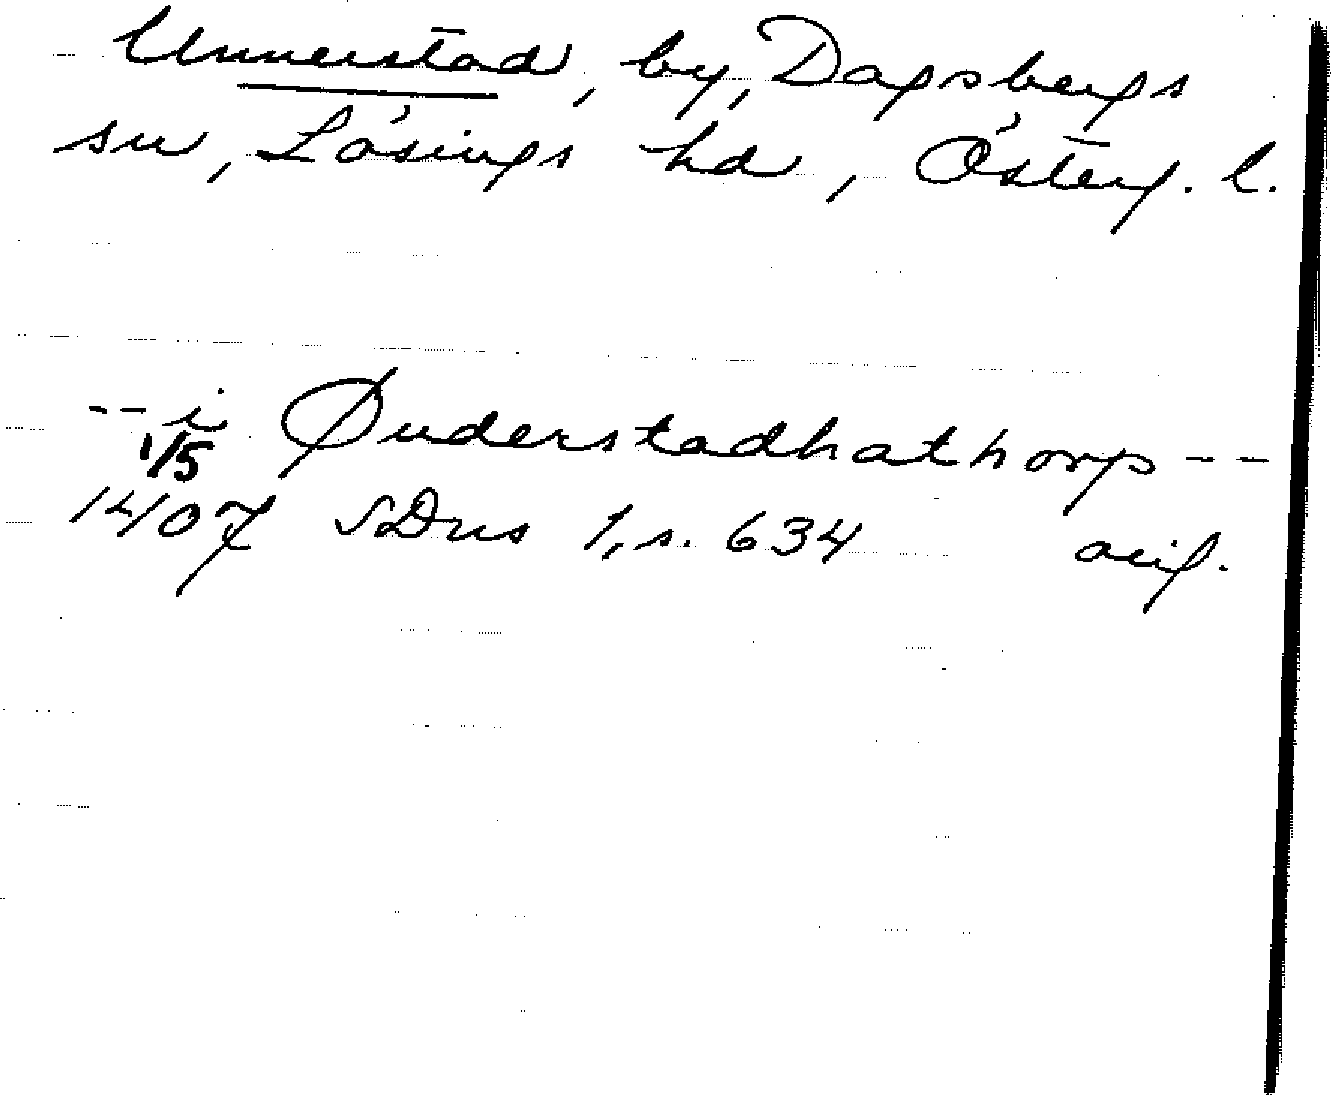 Unnerstad, by, Dagsbergs
sn, Lösings hd, Österg. l.
-- i Ønderstadhathorp --
1/5
1407 SDns 1, s. 634 orig.